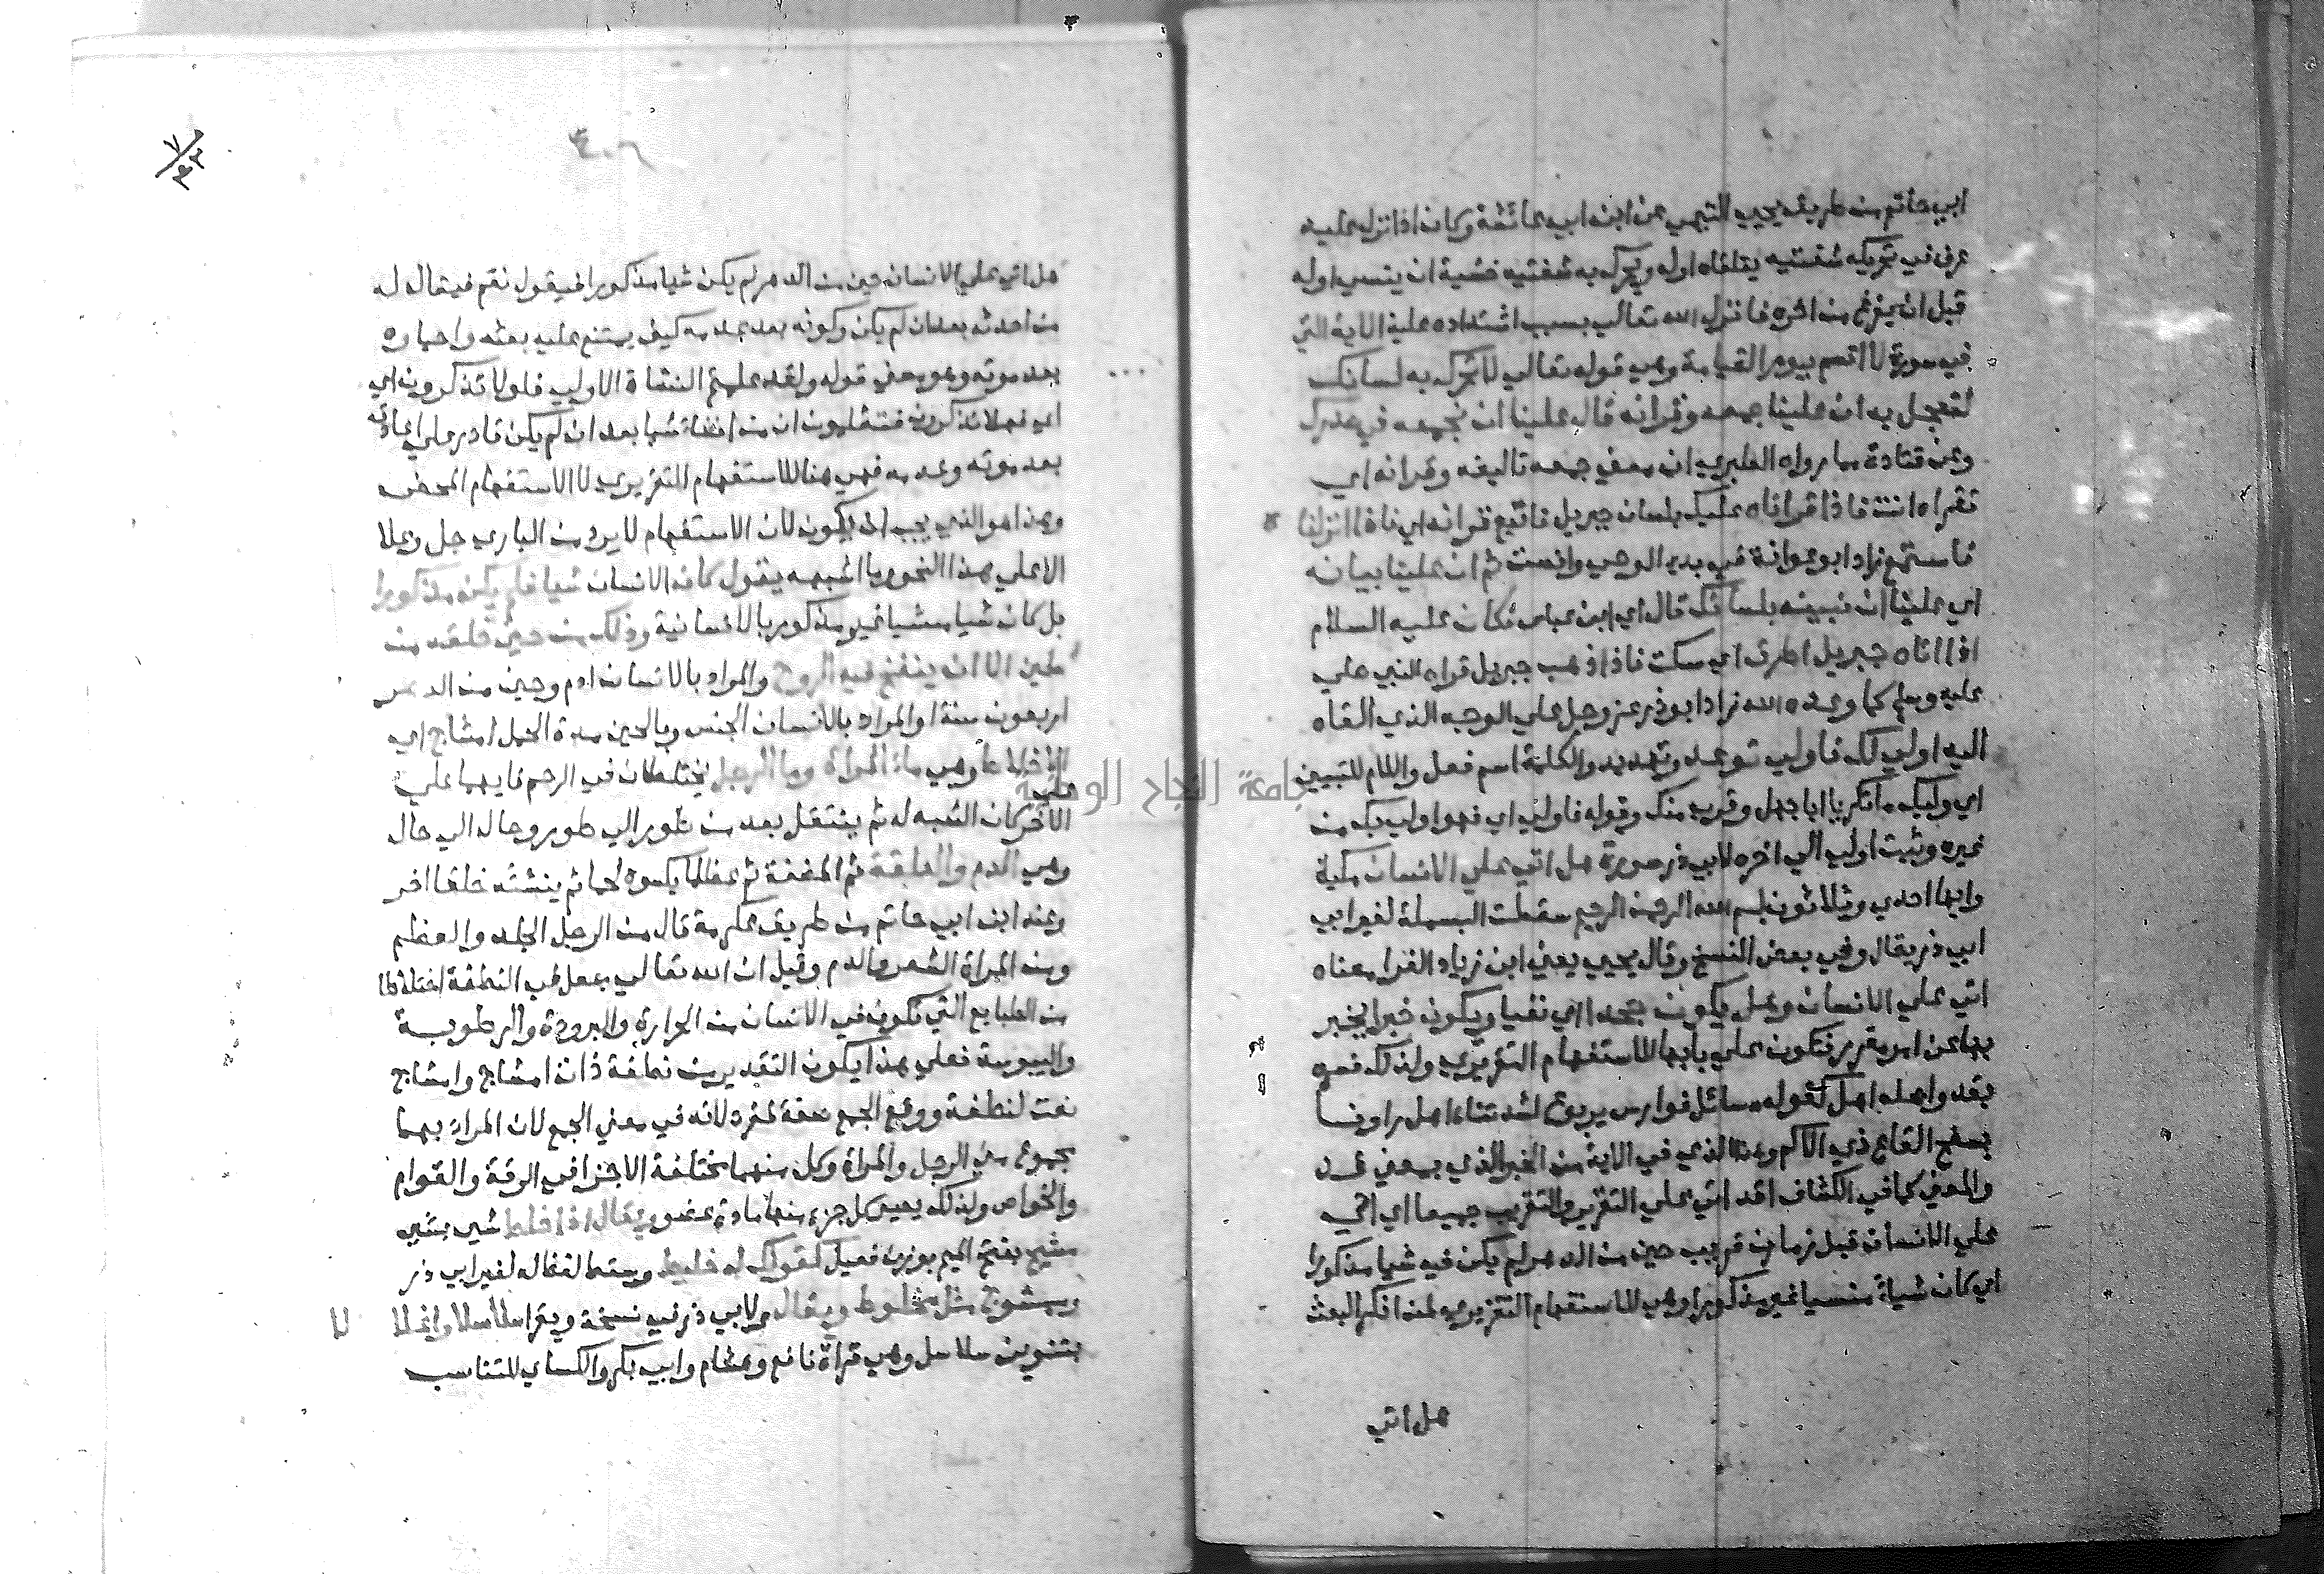 ابي حاتم من طريق يحيي التيمي عن ابن ابي عائشة وكان اذا نزل عليه
عرف في تحريكه شفتيه يتلقاه اوله ويحرك به شفتيه خشية ان ينسي اوله
قبل ان يفرغ من اخره فانزل الله تعالي بسبب اشتداده عليه الاية التي
في سورة لا اقسم بيوم القيامة وهي قوله تعالي لا تحرك به لسانك
لتعجل به ان علينا جمعه وقرانه قال علينا ان نجمعه في صدرك
وعن قتادة مما رواه الطبري ان معني جمعه تاليفه وقرانه اي
تقراه انت فاذا قراناه عليك بلسان جبريل فاتبع قرانه اي فاذا انزلنا
فاستمع زاد ابو عوانة في بدء الوحي وانصت ثم ان علينا بيانه
اي علينا ان نبينه بلسانك قال اي ابن عباس فكان عليه السلام
اذا اتاه جبريل اطرق اي سكت فاذا ذهب جبريل قراه النبي صلي
عليه وسلم كما وعده الله زاد ابو ذر عز وجل علي الوجه الذي القاه
اليه اولي لك فاولي توعد وتهديد والكلمة اسم فعل واللام للتبيين
اي وليك ما تكره يا ابا جهل وقرب منك وقوله فاولي اي فهو اولي بك من
غيره وثبت اولي الي اخره لابي ذر سورة هل اتي علي الانسان مكية
وايها احدي وثلاثون بسم الله الرحمن الرحيم سقطت البسملة لغير ابي
ابي ذر يقال وفي بعض النسخ وقال يحيي يعني ابن زياد الفرا معناه
اتي علي الانسان وهل يكون جحدا اي نفيا ويكون خبرا يخبر
بها عن امر مقرر فتكون علي بابها للاستفهام التقريري ولذلك فسره
بقد واصله اهل كقوله سائل فوارس يربوع لشدتنا اهل راونا
بسفح القاع ذي الاكم وهذا الذي في الاية من الخبر الذي بمعني قد
والمعني كما في الكشاف اقد اتي علي التقرير والتقريب جميعا اي اتي
علي الانسان قبل زمان قريب حين من الدهر لم يكن فيه شيا مذكورا
اي كان شياء منسيا غير مذكور او هي للاستفهام التقريري لمن انكر البعث
هل اتي
هل اتي علي الانسان حين من الدهر لم يكن شيا مذكورا فيقول نعم فيقال له
من احدثه بعد ان لم يكن وكونه بعد عدمه كيف يمتنع عليه بعثه واحياوه
بعد موته وهو معني قوله ولقد علمتم النشاة الاولي فلولا تذكرون اي
اي فهلا تذكرون فتعلمون ان من انشا شيا بعد ان لم يكن قادر علي اعادته
بعد موته وعدمه فهي هنا للاستفهام التقريري لا الاستفهام المحض
وهذا هو الذي يجب ان يكون لان الاستفهام لا يرد من الباري جل وعلا
الا علي هذا النحو وما اشبهه يقول كان الانسان شيا فلم يكن مذكورا
بل كان شيا منسيا غير مذكور بالانسانية وذلك من حين خلقه من
طين الا ان ينفخ فيه الروح والمراد بالانسان ادم وحين من الدهر
اربعون سنة او المراد بالانسان الجنس وبالحين مدة الحمل امشاج اي
الاخلاط وهي ماء المراة وما الرجل يختلطان في الرحم فايهما علي
علي
الاخر كان الشبه له ثم ينتقل بعد من طور الي طور وحال الي حال
وهي الدم والعلقة ثم المضغة ثم عظاما يكسوه لحما ثم ينشئه خلقا اخر
وعند ابن ابي حاتم من طريق عكرمة قال من الرجل الجلد والعظم
ومن المراة الشعر والدم وقيل ان الله تعالي جعل في النطفة اختلاطا
من الطبايع التي تكون في الانسان من الحرارة والبرودة والرطوبة
واليبوسة فعلي هذا يكون التقدير من نطفة ذات امشاج وامشاج
نعت لنطفة ووقع الجمع صفة لمفرد لانه في معني الجمع لان المراد بهما
مجموع مني الرجل والمراة وكل منهما مختلفة الاجزا في الرقة والقوام
والخواص ولذلك يصير كل جزء منهما مادة عضو ويقال اذا خلط شي بشي
مشيج بفتح الميم بوزن فعيل كقولك له خليط وسقط لفظ له لغير ابي ذر
وممشوج مثل مخلوط ويقال ولابي ذر في نسخة ويقرا سلاسلا واغلالا
بتنوين سلاسل وهي قراة نافع وهشام وابي بكر والكساي للتناسب